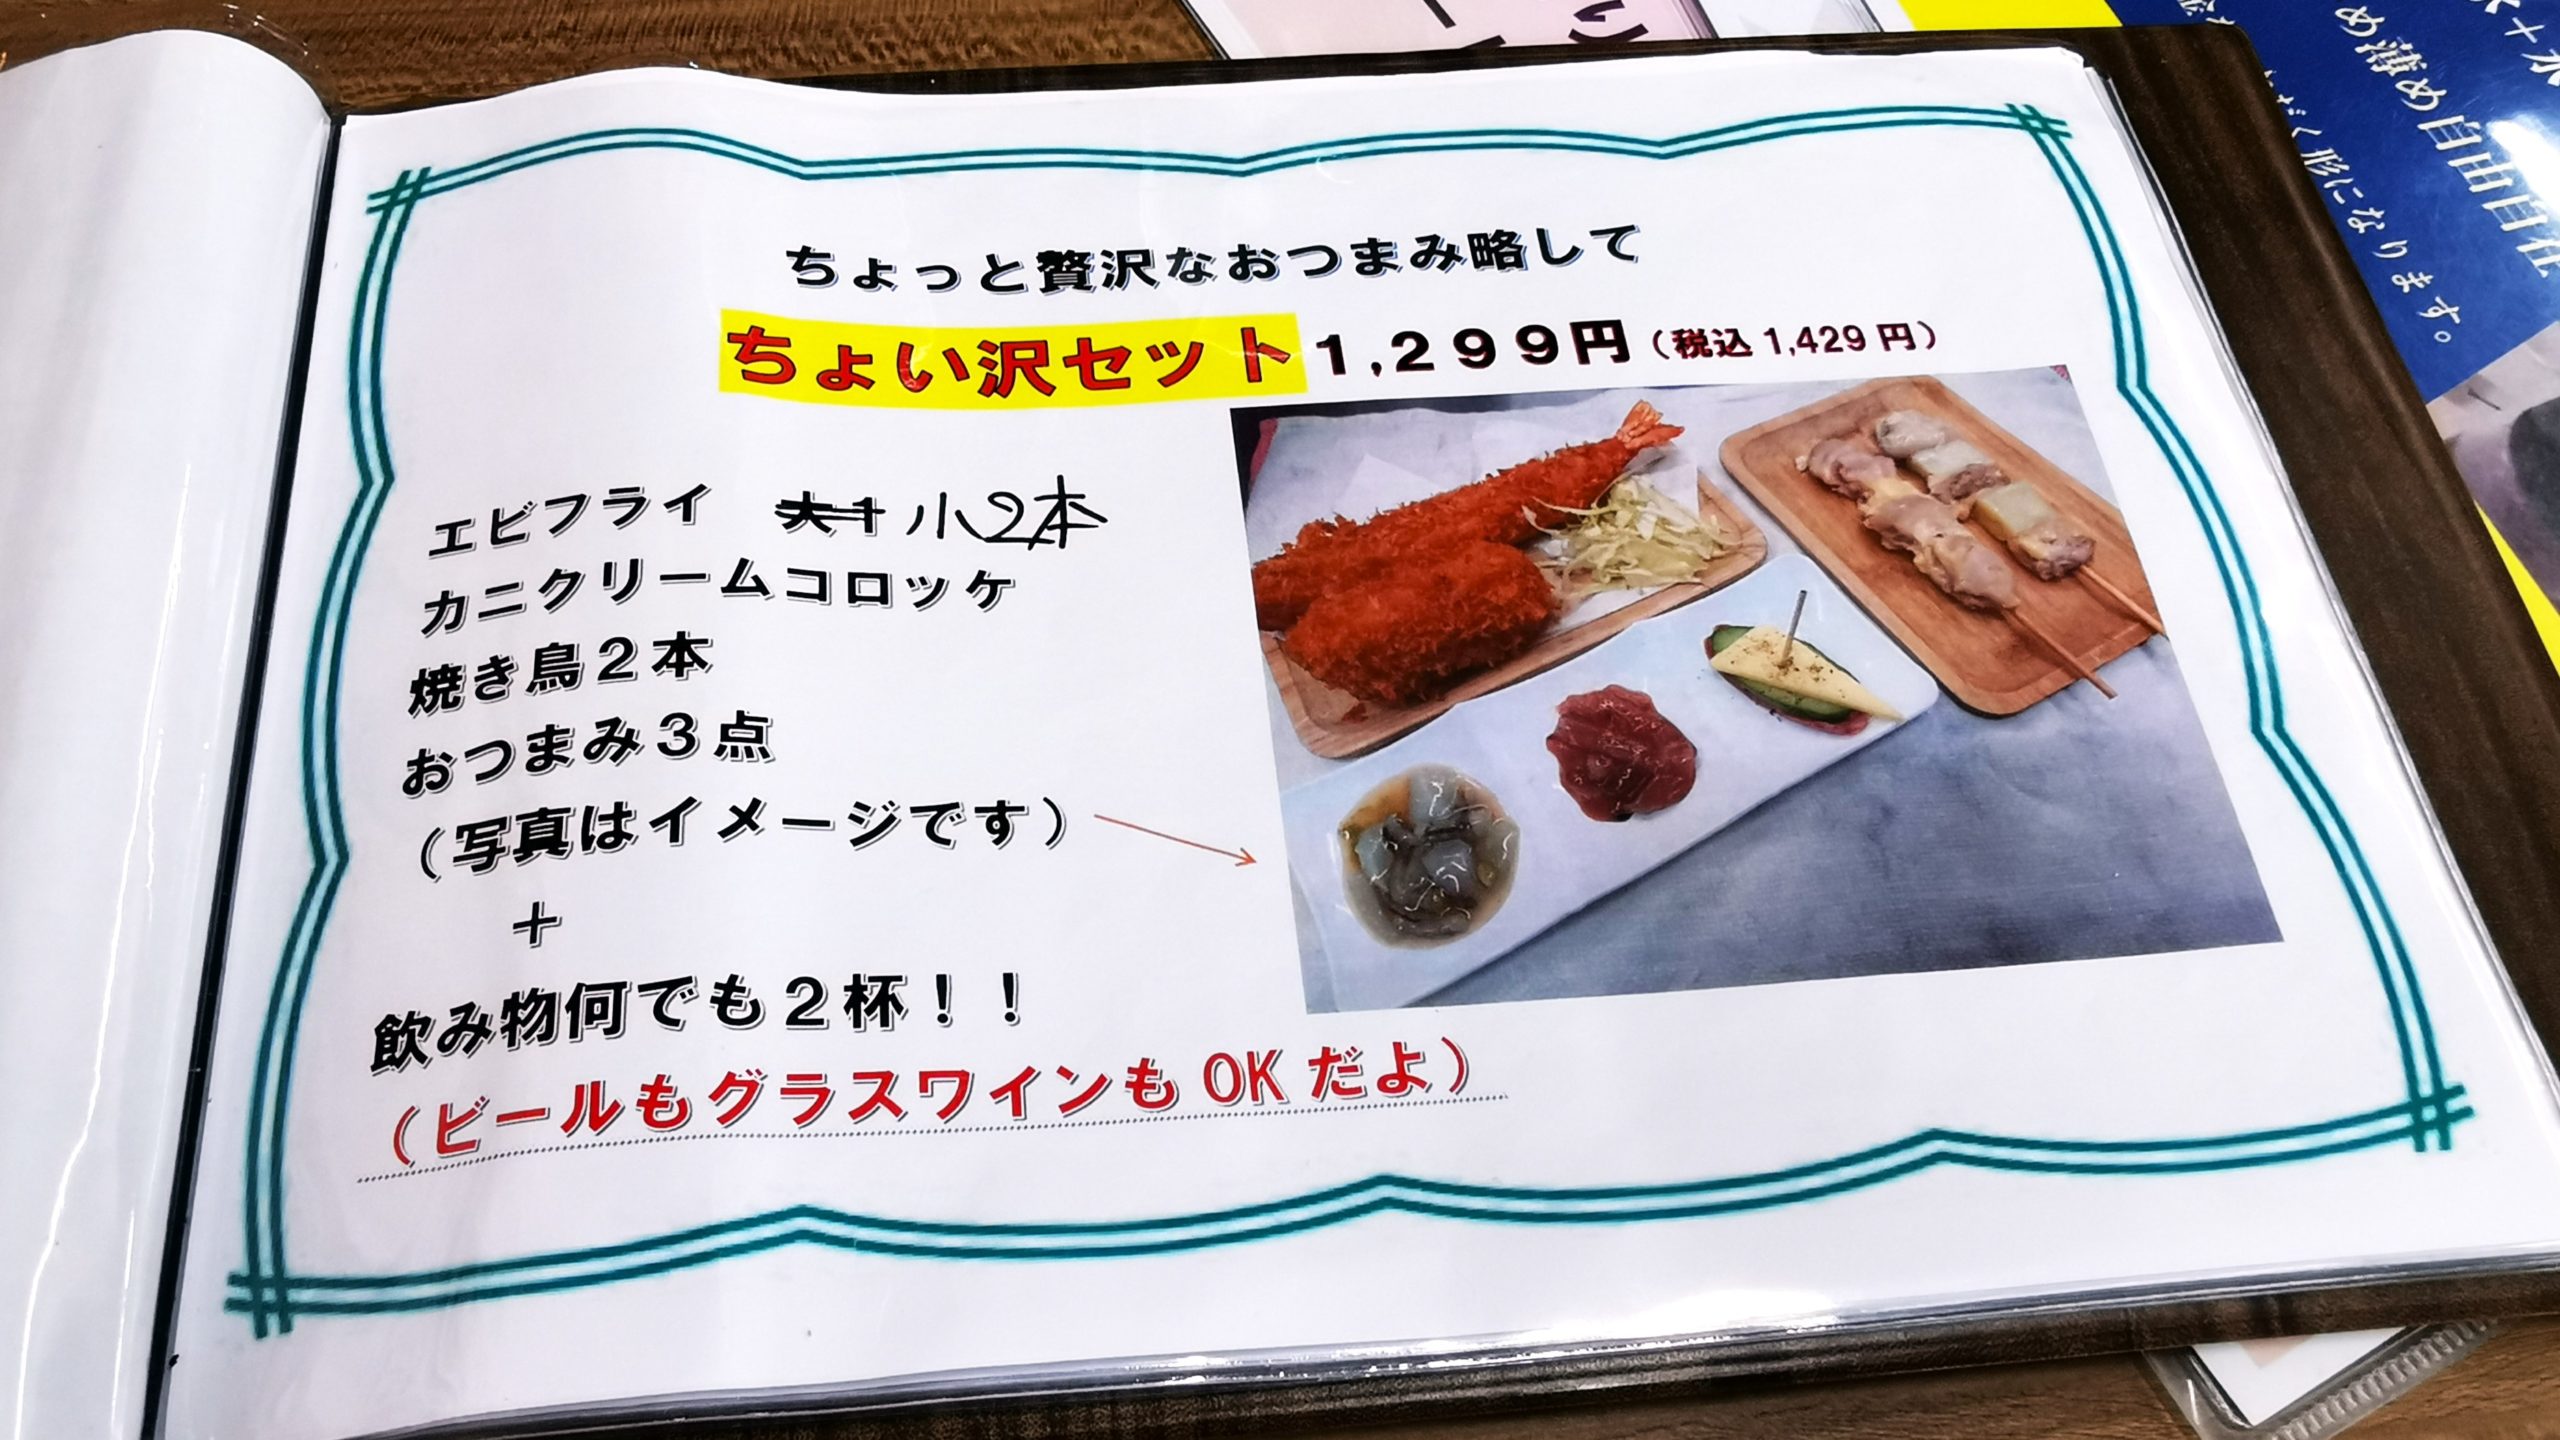 ちょっと贅沢なおつまみ略して
ちょい沢セット1,299円（税込1,429円）
エビフライ 大1 小2本
カニクリームコロッケ
焼き鳥2本
おつまみ3点
（写真はイメージです）
＋
飲み物何でも2杯！！
（ビールもグラスワインもOKだよ）
め薄め自由自在
だく形になります。